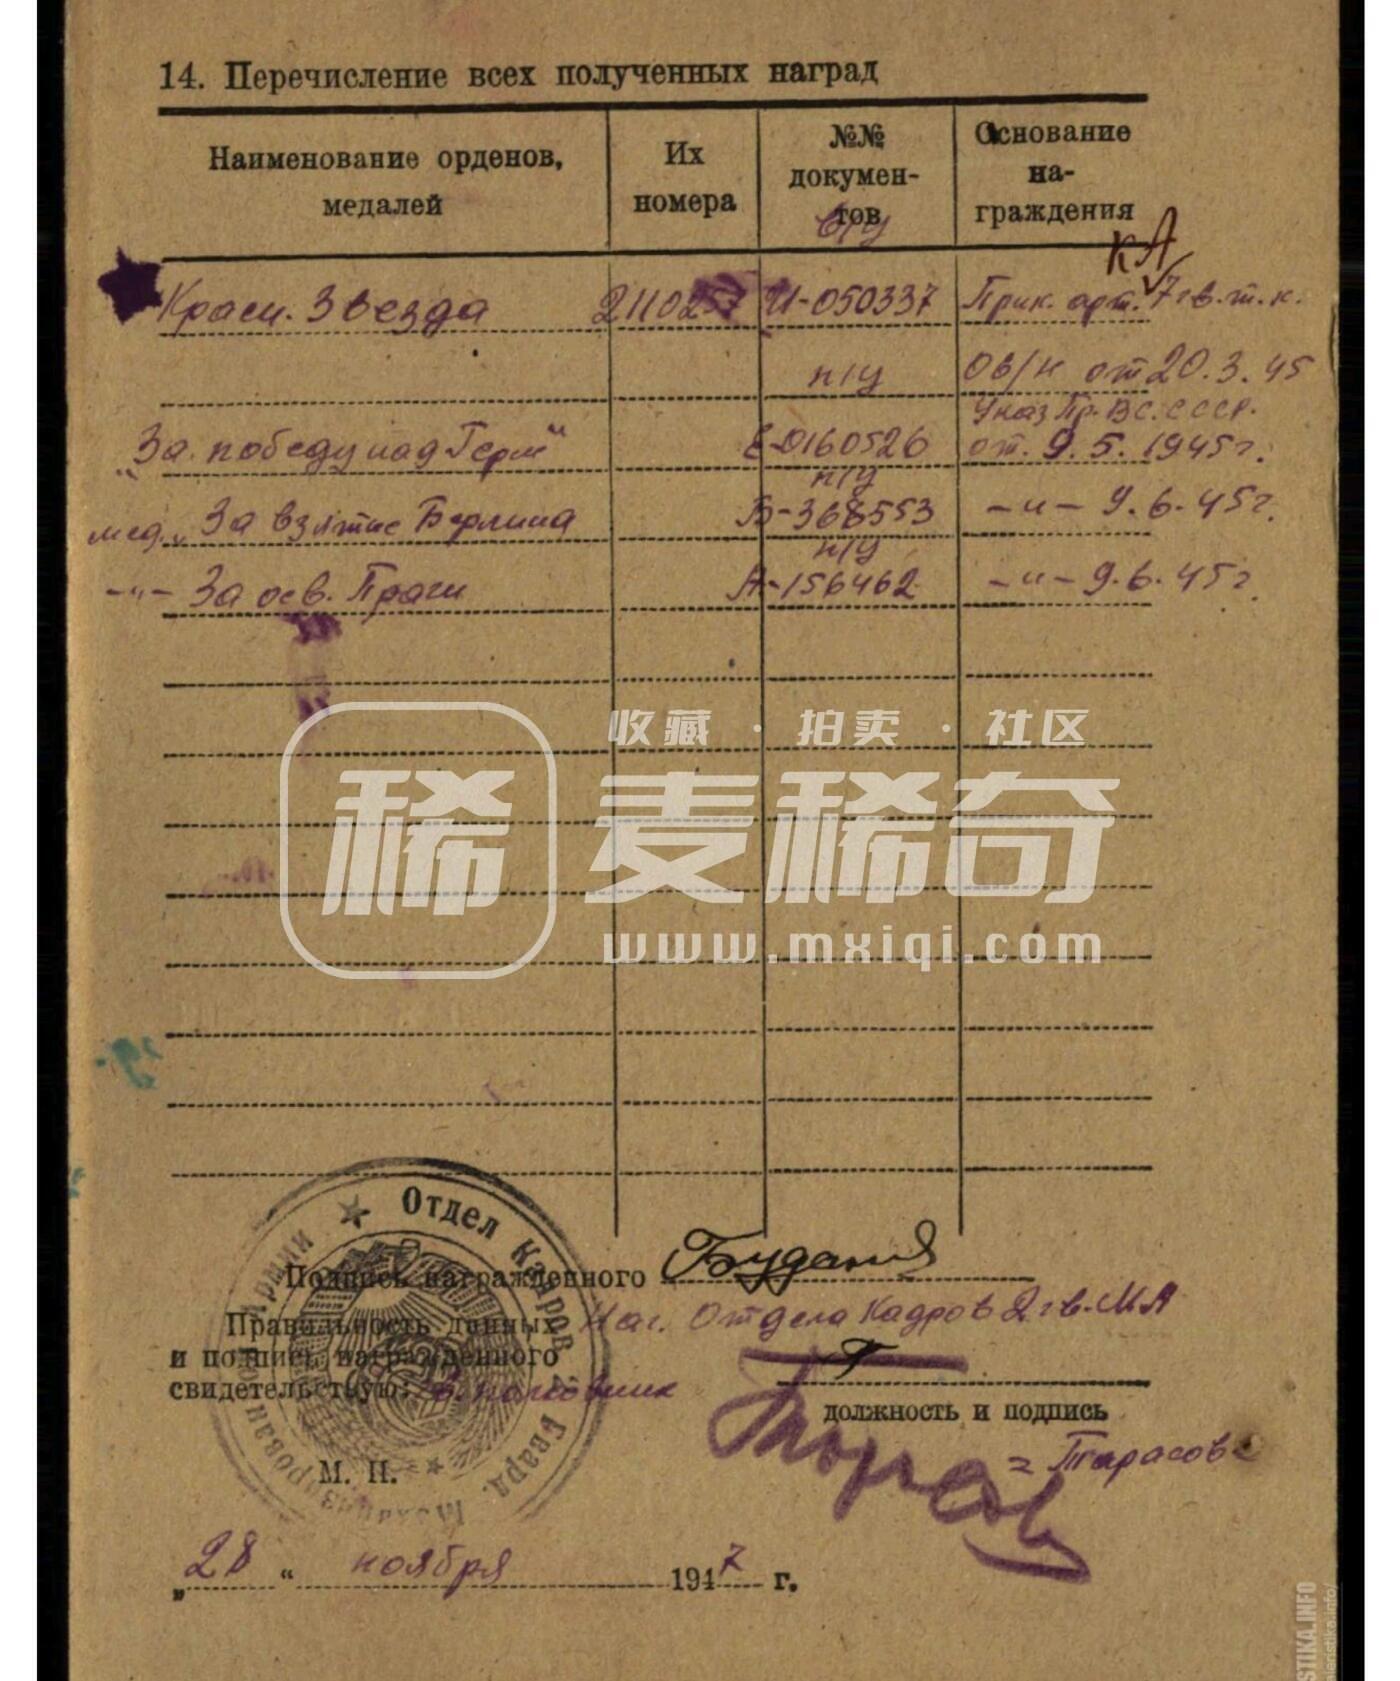 14. Перечисление всех полученных наград
Наименование орденов, медалей
Их номера
№№ документов
Основание награждения
б/у
КА
Красн. Звезда 2110257 И-050337 Прик. арт. 7 гв. т. к.
п/у Об/н от 20.3.45
Указ Пр. ВС. СССР.
"За победу над Герм" Е-0160526 от. 9.5.1945г.
п/у
мед. "За взятие Берлина Б-368553 -"- 9.6.45г.
п/у
-"- За осв. Праги А-156462 -"- 9.6.45г.
收藏 · 拍卖 · 社区
稀 麦稀奇
www.mxiqi.com
★ Отдел Кадров 2 Гвард.
Армии
Подпись награжденного
Правильность данных Нач. Отдела Кадров 2 гв. МА
и подпись награжденного
свидетельствую:
должность и подпись
= Тарасов =
М. П.
„28“ ноября 1947 г.
STIKA.INFO